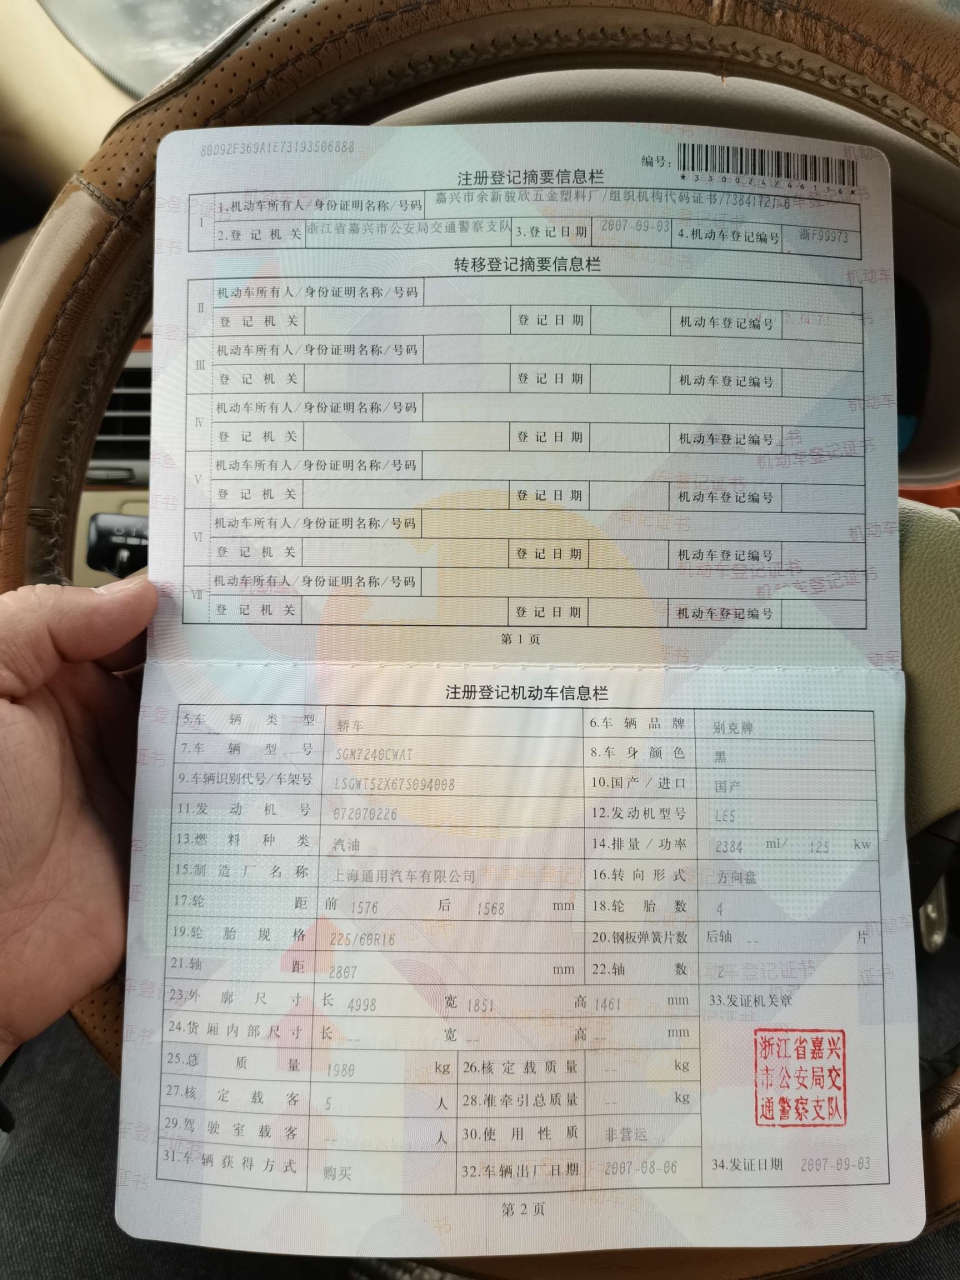 编号:
*330024246136*
注册登记摘要信息栏
Ⅰ 1.机动车所有人/身份证明名称/号码 嘉兴市余新骏欣五金塑料厂/组织机构代码证书/73841721-6
2.登记机关 浙江省嘉兴市公安局交通警察支队 3.登记日期 2007-09-03 4.机动车登记编号 浙F99973
转移登记摘要信息栏
Ⅱ 机动车所有人/身份证明名称/号码
登记机关 登记日期 机动车登记编号
Ⅲ 机动车所有人/身份证明名称/号码
登记机关 登记日期 机动车登记编号
Ⅳ 机动车所有人/身份证明名称/号码
登记机关 登记日期 机动车登记编号
Ⅴ 机动车所有人/身份证明名称/号码
登记机关 登记日期 机动车登记编号
Ⅵ 机动车所有人/身份证明名称/号码
登记机关 登记日期 机动车登记编号
Ⅶ 机动车所有人/身份证明名称/号码
登记机关 登记日期 机动车登记编号
第1页
注册登记机动车信息栏
5.车辆类型 轿车 6.车辆品牌 别克牌
7.车辆型号 SGM7240CWAT 8.车身颜色 黑
9.车辆识别代号/车架号 LSGWT52X67S094008 10.国产/进口 国产
11.发动机号 072070226 12.发动机型号 LE5
13.燃料种类 汽油 14.排量/功率 2384 ml/ 125 kw
15.制造厂名称 上海通用汽车有限公司 16.转向形式 方向盘
17.轮距 前 1576 后 1568 mm 18.轮胎数 4
19.轮胎规格 225/60R16 20.钢板弹簧片数 后轴 -- 片
21.轴距 2807 mm 22.轴数 2
23.外廓尺寸 长 4998 宽 1851 高 1461 mm 33.发证机关章
24.货厢内部尺寸 长 -- 宽 -- 高 -- mm
25.总质量 1980 kg 26.核定载质量 -- kg
27.核定载客 5 人 28.准牵引总质量 -- kg
29.驾驶室载客 -- 人 30.使用性质 非营运
31.车辆获得方式 购买 32.车辆出厂日期 2007-08-06 34.发证日期 2007-09-03
浙江省嘉兴
市公安局交
通警察支队
第2页